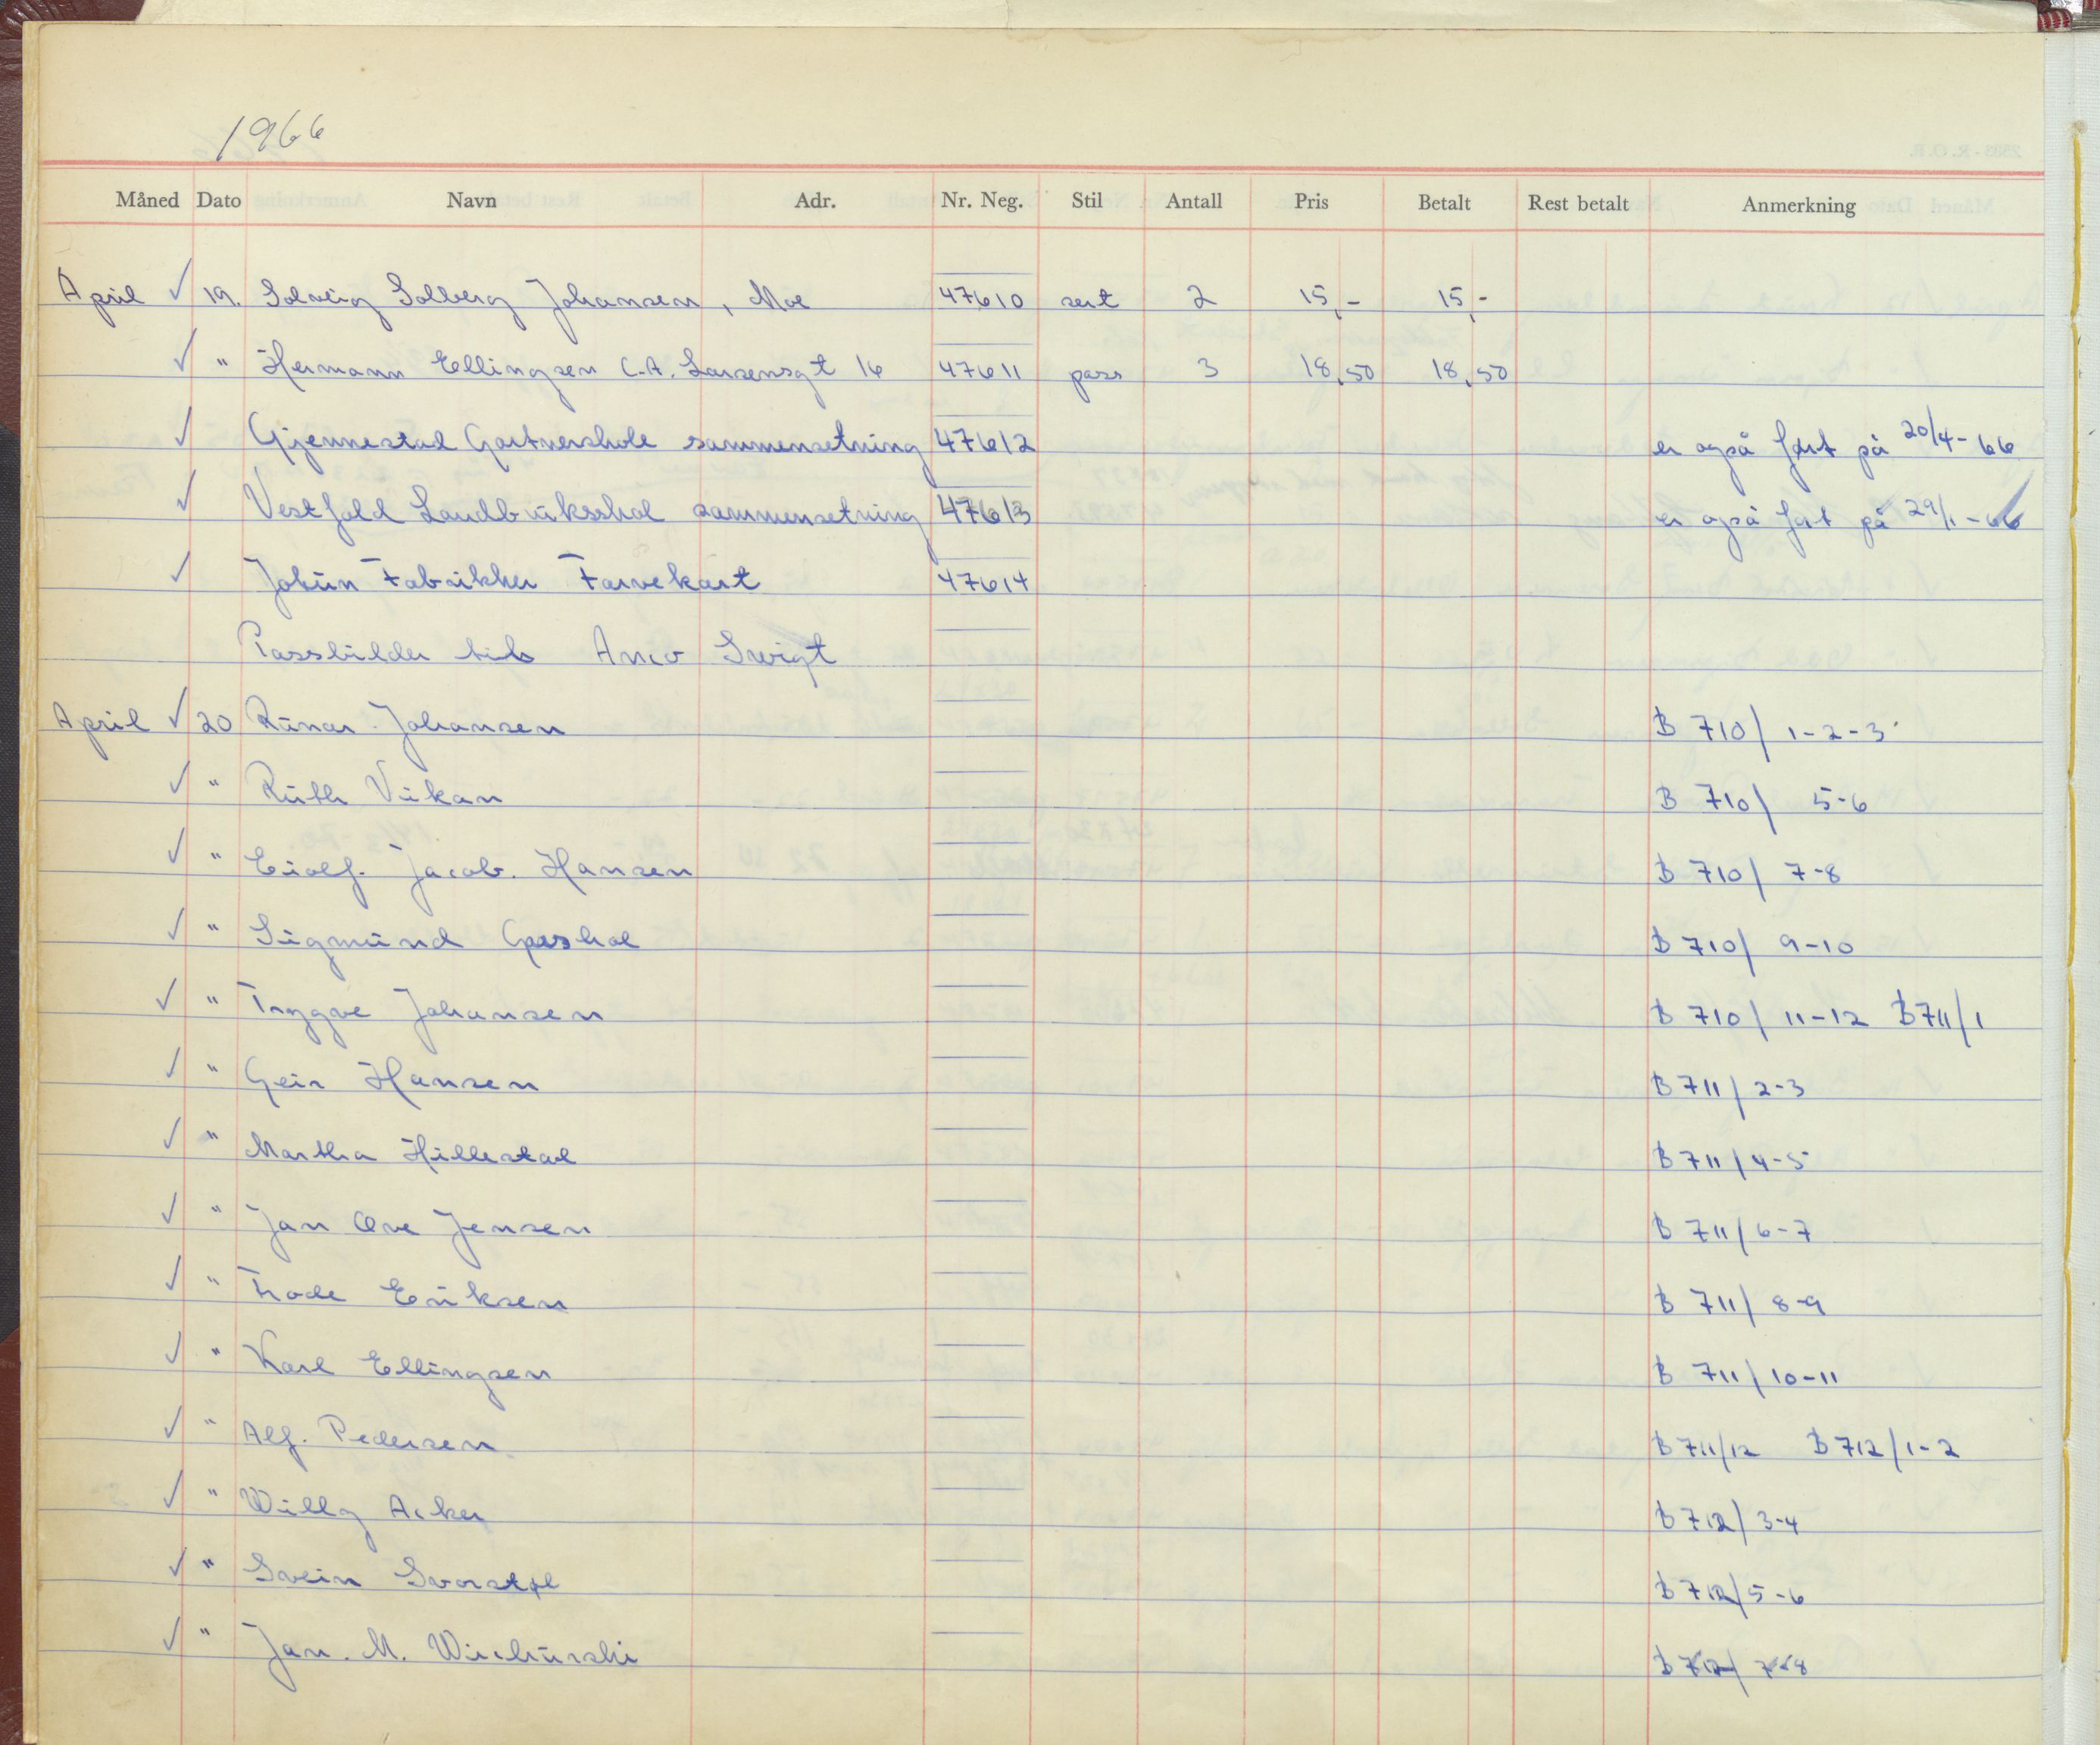 1966
Måned Dato Navn Adr. Nr. Neg. Stil Antall Pris Betalt Rest betalt Anmerkning
April ✓ 19. Solveig Solberg Johansen, Moe 47610 sert 2 15,- 15,-
✓ " Hermann Ellingsen C.A. Larsensgt 16 47611 pass 3 18,50 18,50
✓ Gjennestad Gartnerskole sammensetning 47612 er også ført på 20/4-66
✓ Vestfold Landbruksskol sammensetning 47613 er også ført på 29/1-66
✓ Jotun Fabrikker Farvekart 47614
Passbilder til
April ✓ 20 Runar Johansen B 710/ 1-2-3
✓ " Ruth Vikan B 710/ 5-6
✓ " Eiolf. Jacob. Hansen B 710/ 7-8
✓ " Sigmund B 710/ 9-10
✓ " Tryggve Johansen B 710/ 11-12 B 711/1
✓ " Geir Hansen B 711/ 2-3
✓ " Martha Hillestad B 711/4-5
✓ " Jan Ove Jensen B 711/6-7
✓ " Frode Eriksen B 711/ 8-9
✓ " Karl Ellingsen B 711/10-11
✓ " Alf. Pedersen B 711/12 B 712/1-2
✓ " Willy Acker B 712/ 3-4
✓ " Svein Svorstøl B 712/5-6
✓ " Jan. M. B 712/ 7-8